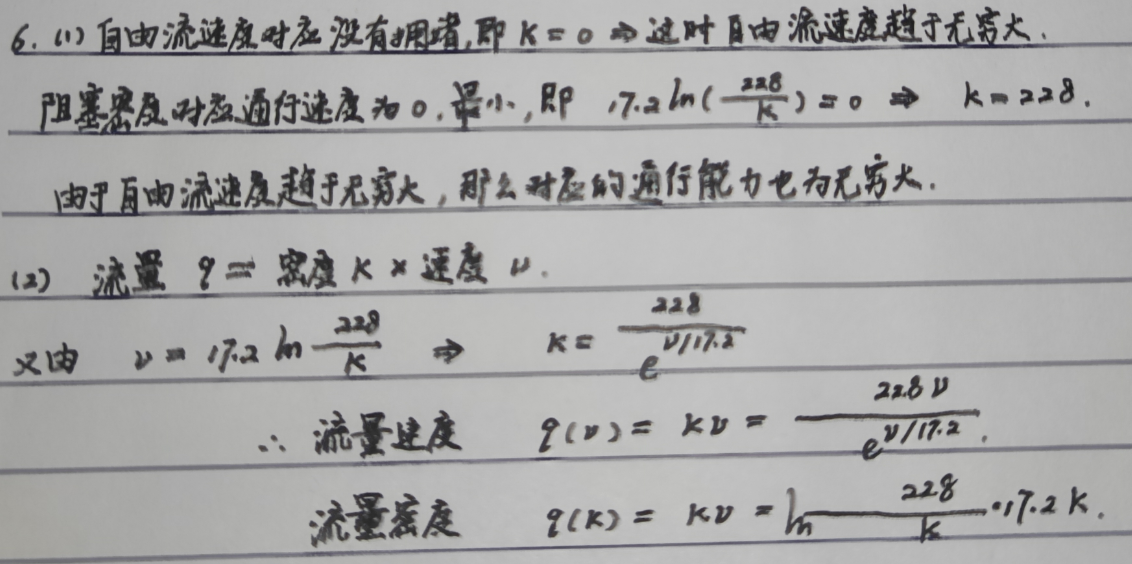 6. (1) 自由流速度对应没有拥堵,即 K = 0 ⇒ 这时自由流速度趋于无穷大.
阻塞密度对应通行速度为0,最小,即 17.2 ln(228/K) = 0 ⇒ K = 228.
由于自由流速度趋于无穷大,那么对应的通行能力也为无穷大.
(2) 流量 q = 密度 K × 速度 v.
又由 v = 17.2 ln 228/K ⇒ K = 228/e^(v/17.2)
∴ 流量速度 q(v) = Kv = 228v/e^(v/17.2).
流量密度 q(K) = Kv = ln 228/K · 17.2 K.